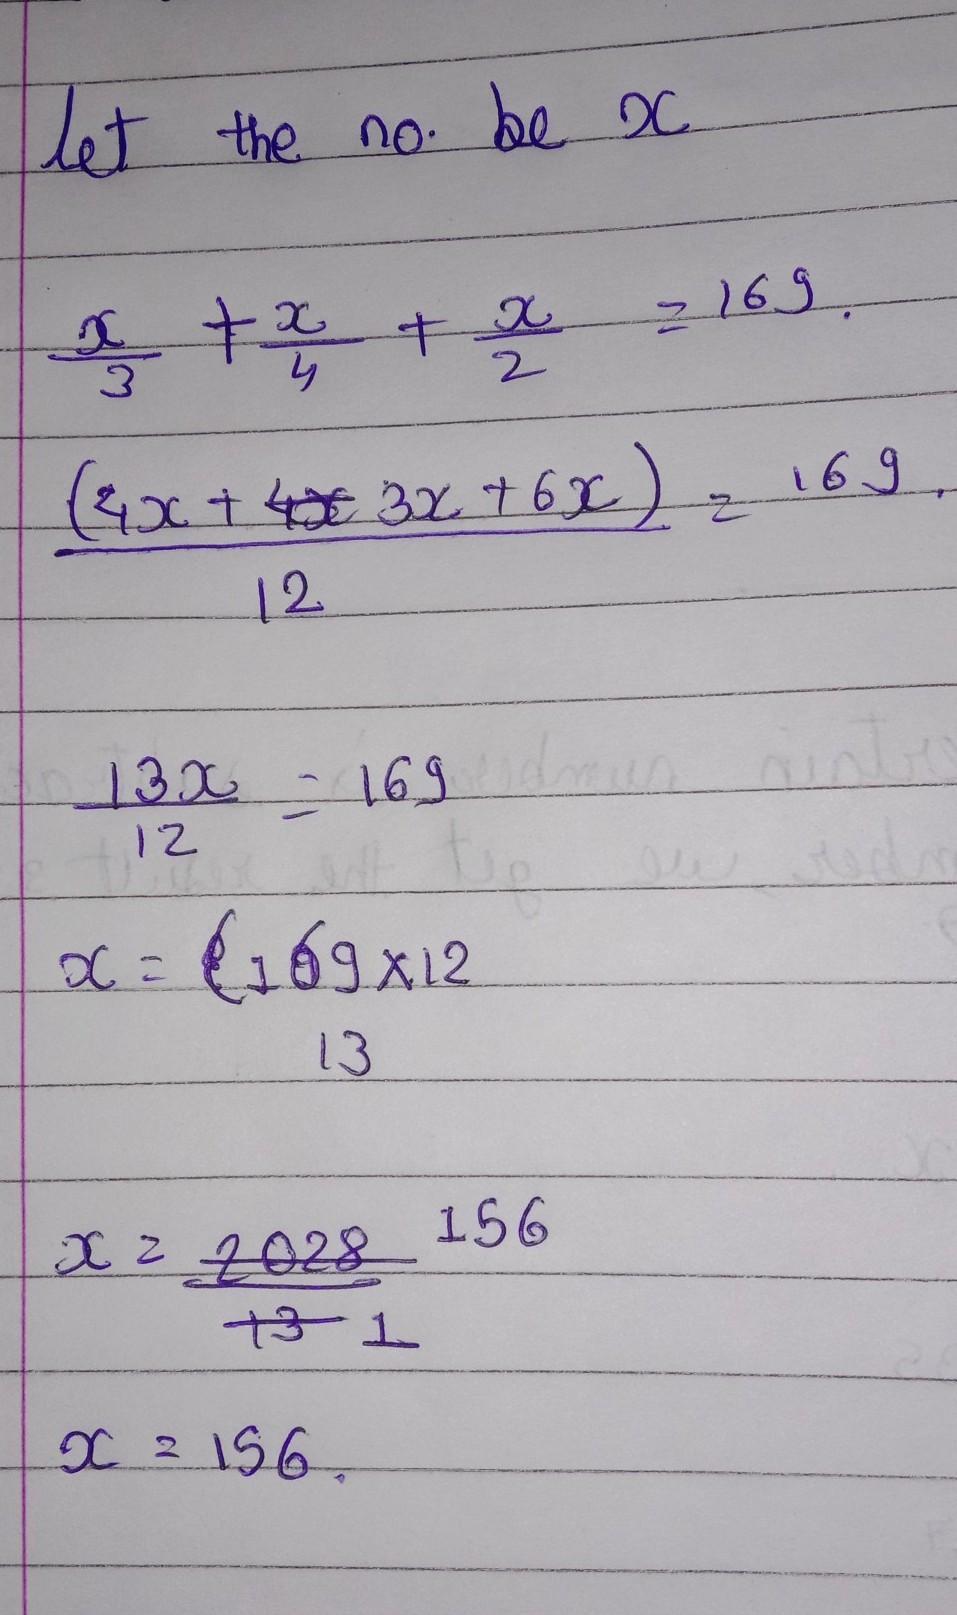 Let the no. be x
x/3 + x/4 + x/2 = 169.
(4x + 3x + 6x)/12 = 169.
13x/12 = 169
x = (169 × 12
13
x = 2028 156
13 1
x = 156.